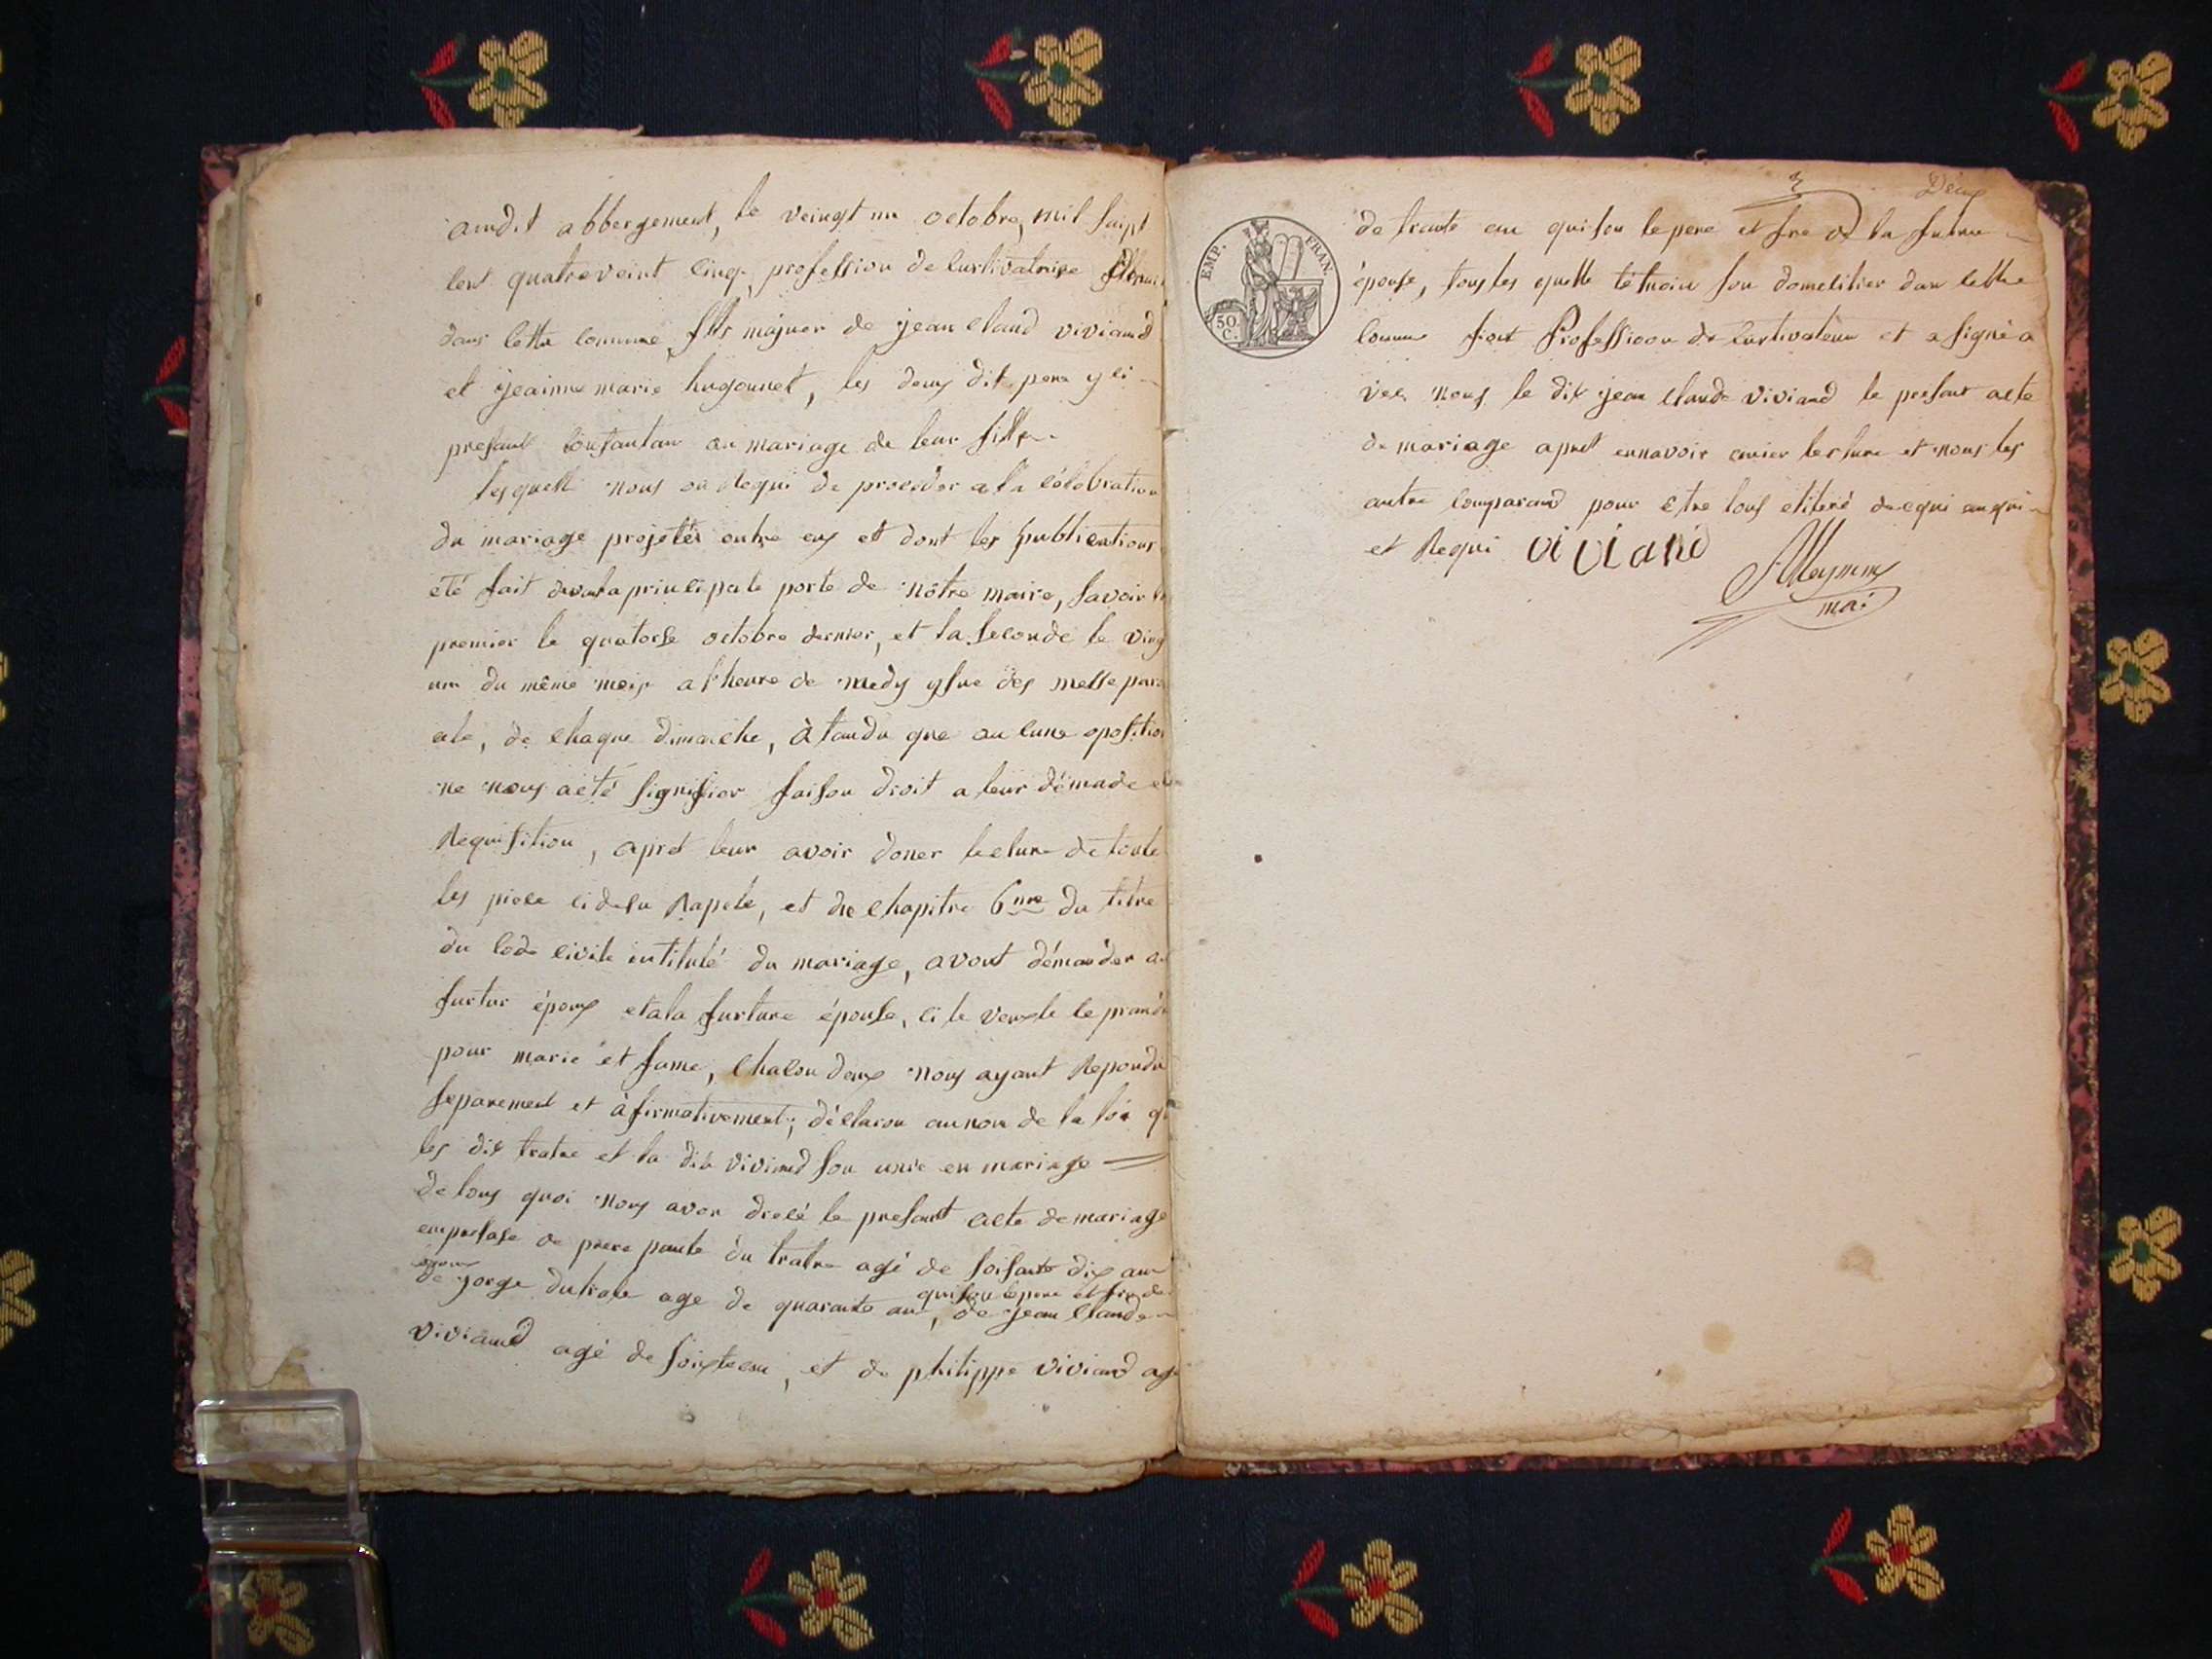 audit abbergement, le veingt un octobre, mil saipt
cent quatreveint cinq, profession de curtivatrise
dans cette commune, fille majuer de jean claud viviand
et jeainne marie hugonnet, les deux dit pere y ci
presant consantan au mariage de leur fille
lesquelle nous on requi de proceder a la célébration
du mariage projetés entre eux et dont les publications
été fait devant la principale porte de nôtre maire, savoir la
premier le quatorse octobre dernier, et la seconde le ving
un du même mois a l'heure de medy ysue des messe paro
ale, de chaque dimaiche, àtandu que aucune oposition
ne nous aété signifier faison droit a leur démade et
Requisition, apret leur avoir doner lecture de toute
les piece cidesu Rapele, et du chapitre 6me du titre
du code civile intitulé du mariage, avont démander au
furtur époux etala furture épouse, ci le veuxle le prandr
pour marie et fame, chacon deux nous ayant Repondu
separement et àfirmativement; déclaron aunom de la loi qu
les dix tratre et la dite viviand son unie en mariage
de tous quoi nous avon dresé le presant acte de mariage
empresase de piere paule du tratre agé de soisante dix an
époux
de jorge dutrate age de quarante an, de jean claude
qui son le pere et frere de
viviand agé de soixtean, et de philippe viviand agé
Deux
EMP. FRAN.
50 C.
de trante an qui son le pere et fre de la future
épouse, tous les quelle témoin son domecilier dan cette
comune font Profession de curtivateur et a signé a
vec nous le dix jean claude viviand le presant acte
de mariage apret ennavoir lecture et nous les
autre comparand pour être tous eliteré de cequi enqui
et Requi viviand
mai